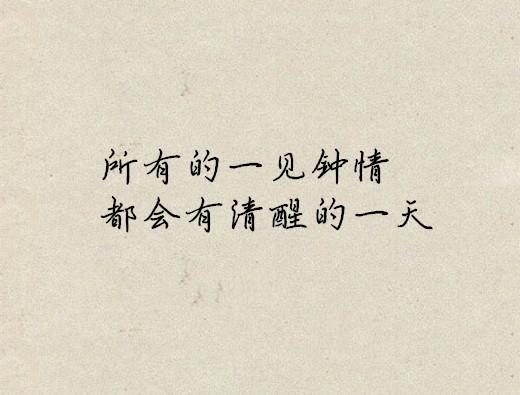 所有的一见钟情
都会有清醒的一天